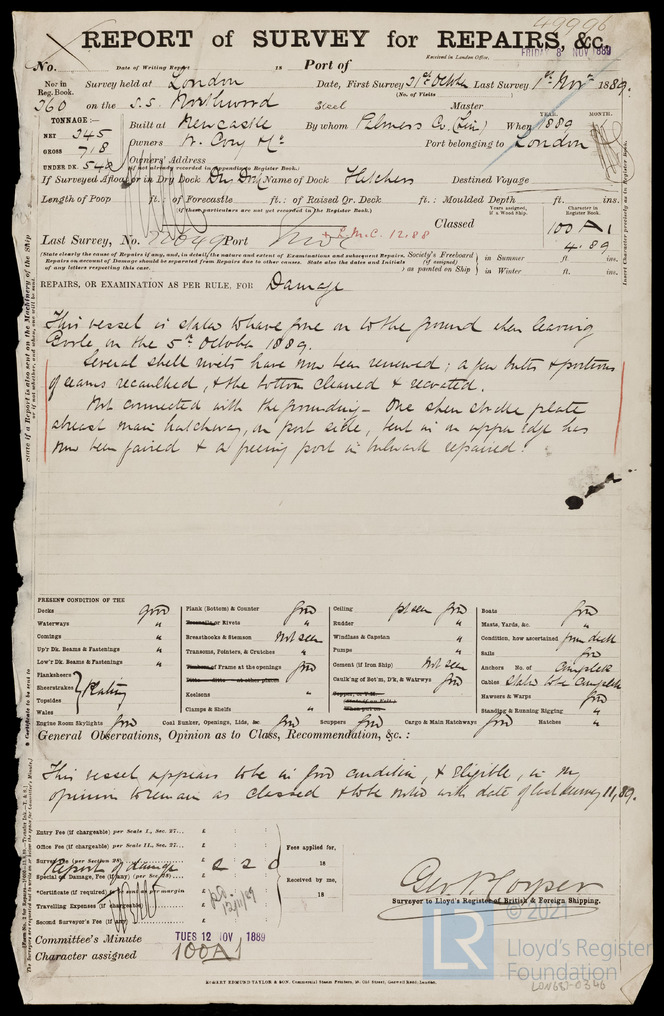 49996
REPORT of SURVEY for REPAIRS, &c.
FRIDAY 8 NOV 1889
Received in London Office.
No. Date of Writing Report 18 Port of
No. in Reg. Book. Survey held at London Date, First Survey 31st October Last Survey 1st Novr 1889.
(No. of Visits )
360 on the S.S. Northwood Steel Master
TONNAGE:—
NET 245
GROSS 718
UNDER DK. 542
Built at Newcastle By whom Palmers Co. (Lim) When 1889
YEAR. MONTH.
Owners W. Cory & Co Port belonging to London
Owners' Address
(if not already recorded in Appendix to Register Book.)
If Surveyed Afloat or in Dry Dock Dry Dock Name of Dock Fletchers Destined Voyage
Length of Poop ft.: of Forecastle ft.: of Raised Qr. Deck ft.: Moulded Depth ft. ins.
(If these particulars are not yet recorded in the Register Book.)
Years assigned, if a Wood Ship.
Character in Register Book.
Classed 100 A 1
4.89
Last Survey, No. Port
L.M.C. 12.88
(State clearly the cause of Repairs if any, and, in detail, the nature and extent of Examinations and subsequent Repairs.
Repairs on account of Damage should be separated from Repairs due to other causes. State also the dates and Initials
of any letters respecting this case.)
Society's Freeboard (if assigned) as painted on Ship
in Summer ft. ins.
in Winter ft. ins.
REPAIRS, OR EXAMINATION AS PER RULE, FOR Damage
This vessel is stated to have gone on to the ground when leaving
Poole, on the 5th October 1889.
Several shell rivets have now been renewed; a few butts & portions
of seams recaulked, & the bottom cleaned & recoated.
Not connected with the grounding— One sheer strake plate
abreast main hatchway, on port side, bent in on upper edge has
now been faired & a freeing port in bulwark repaired.
PRESENT CONDITION OF THE
Decks good
Waterways "
Comings "
Up'r Dk. Beams & Fastenings "
Low'r Dk. Beams & Fastenings "
Planksheers
Sheerstrakes
Topsides
Wales
Plating
Engine Room Skylights good
Plank (Bottom) & Counter good
Treenails or Rivets "
Breasthooks & Stemson Not seen
Transoms, Pointers, & Crutches "
Timbers of Frame at the openings good
Ditto Ditto at other places
Keelsons "
Clamps & Shelfs "
Coal Bunker, Openings, Lids, &c. good
Ceiling pt. seen good
Rudder "
Windlass & Capstan "
Pumps "
Cement (if Iron Ship) Not seen
Caulk'ng of Bot'm, D'k, & Watrwys good
Scuppers good
Cargo & Main Hatchways good
Boats good
Masts, Yards, &c. "
Condition, how ascertained from deck
Sails good
Anchors No. of Complete
Cables stated to be complete
Hawsers & Warps good
Standing & Running Rigging "
Hatches "
General Observations, Opinion as to Class, Recommendation, &c.:
This vessel appears to be in good condition, & eligible, in my
opinion to remain as classed & to be noted with date of last survey 11,89.
Entry Fee (if chargeable) per Scale I., Sec. 27... £ : :
Office Fee (if chargeable) per Scale II., Sec. 27... £ : :
Survey Fee (per Section 28) £ : :
Report of damage
Special or Damage, Fee (if any) (per Sec. 28) £ 2 2 0
*Certificate (if required) as per margin £
Travelling Expenses (if chargeable) £
Second Surveyor's Fee (if any) £
Fees applied for,
18
Received by me,
18
12/11/89
Geo. P. Cooper
Surveyor to Lloyd's Register of British & Foreign Shipping.
Committee's Minute TUES 12 NOV 1889
Character assigned 100 A 1
ROBERT EDMUND TAYLOR & SON, Commercial Steam Printers, 19, Old Street, Goswell Road, London.
© 2021
LR
Lloyd's Register
Foundation
LON667-0346